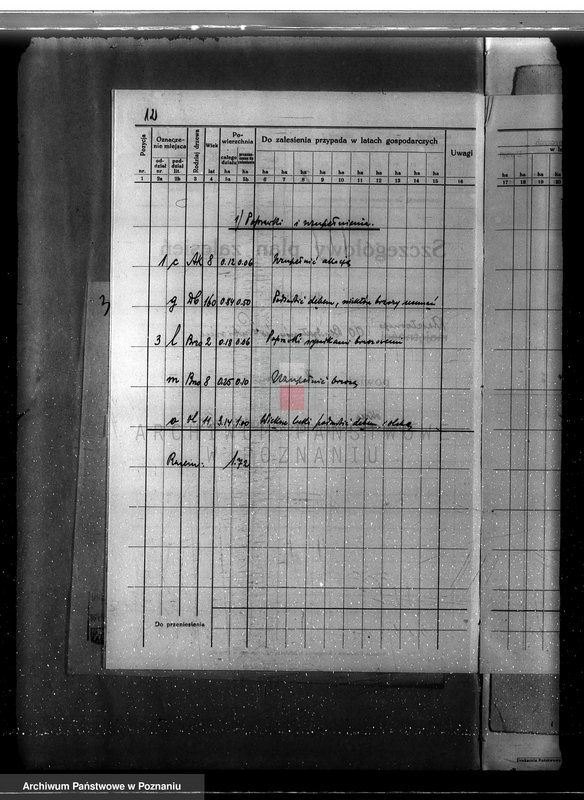 12
Pozycja Oznaczenie miejsca Rodzaj drzewa Wiek Powierzchnia Do zalesienia przypada w latach gospodarczych Uwagi
oddział pododdział całego działu
nr. nr. lit. lat ha ha ha ha ha ha ha ha ha ha ha ha
1 2a 2b 3 4 5a 5b 6 7 8 9 10 11 12 13 14 15 16 17 18 19 20
1) Poprawki i uzupełnienia.
1 c Ak 8 0.12 0.06 Uzupełnić akacją
g Db 160 0.84 0.50 Podsadzić dębem, niektóre brzozy usunąć
3 l Brz 2 0.18 0.06 Poprawki
m Brz 8 0.25 0.10 Uzupełnić brzozą
o ol 11 3.14 1.00 Większe luki podsadzić dębem i olchą
Razem: 1.72
ARCHIWUM PAŃSTWOWE
W POZNANIU
Do przeniesienia
Archiwum Państwowe w Poznaniu